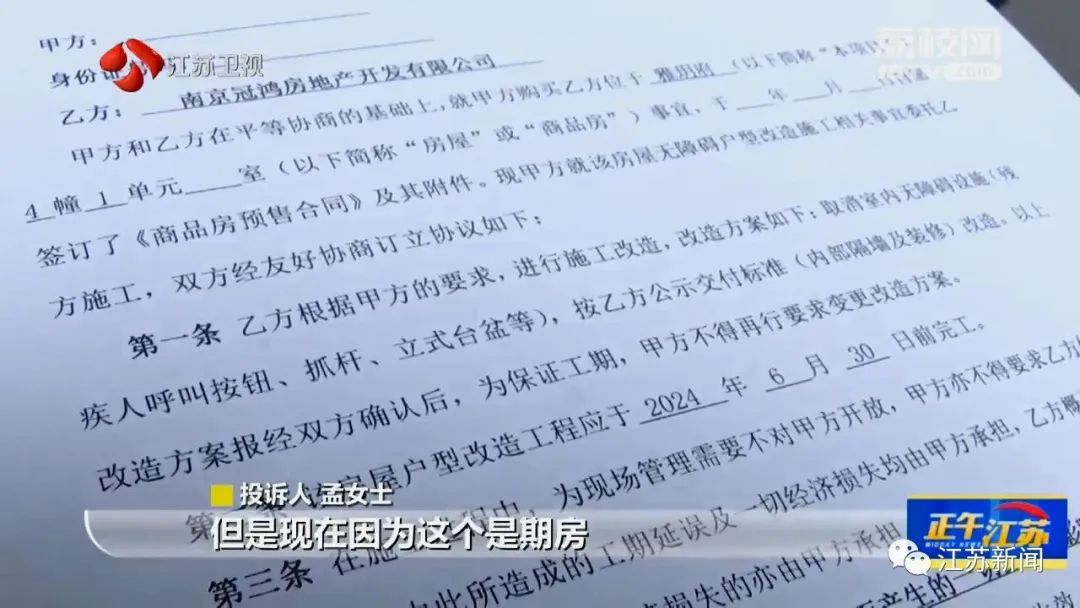 甲方：
身份证
江苏卫视
荔枝网
乙方： 南京冠鸿房地产开发有限公司
甲方和乙方在平等协商的基础上，就甲方购买乙方位于 雅玥府 （以下简称“本项目
4 幢 1 单元____室（以下简称“房屋”或“商品房”）事宜，于___年___月___日
签订了《商品房预售合同》及其附件。现甲方就该房屋无障碍户型改造施工相关事宜委托乙
方施工，双方经友好协商订立协议如下：
第一条 乙方根据甲方的要求，进行施工改造，改造方案如下：取消室内无障碍设施（残
疾人呼叫按钮、抓杆、立式台盆等），按乙方公示交付标准（内部隔墙及装修）改造。以上
改造方案报经双方确认后，为保证工期，甲方不得再行要求变更改造方案。
房屋户型改造工程应于 2024 年 6 月 30 日前完工。
第三条 在施工过程中，为现场管理需要不对甲方开放，甲方亦不得要求乙方
此所造成的工期延误及一切经济损失均由甲方承担，乙方概
损失的亦由甲方承担
产生的一切
投诉人 孟女士
但是现在因为这个是期房
正午江苏
MIDDAY NEWS
江苏新闻